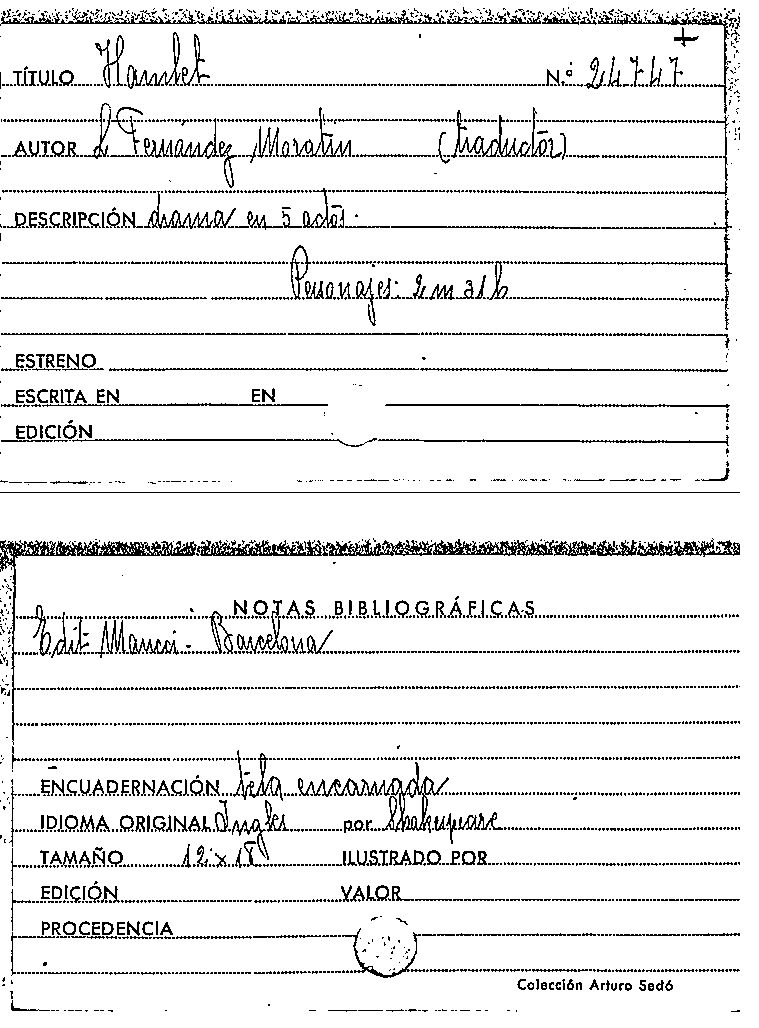 +
TÍTULO Hamlet N.º 24747
AUTOR L Fernández Moratin (traductor)
DESCRIPCIÓN drama en 5 actos.
Personajes: 2 m 31 h
ESTRENO
ESCRITA EN EN
EDICIÓN
NOTAS BIBLIOGRÁFICAS
Edit Maucci - Barcelona
ENCUADERNACIÓN tela encarnada
IDIOMA ORIGINAL Ingles por Shakespeare
TAMAÑO 12 x 18
ILUSTRADO POR
EDICIÓN VALOR
PROCEDENCIA
Colección Arturo Sedó